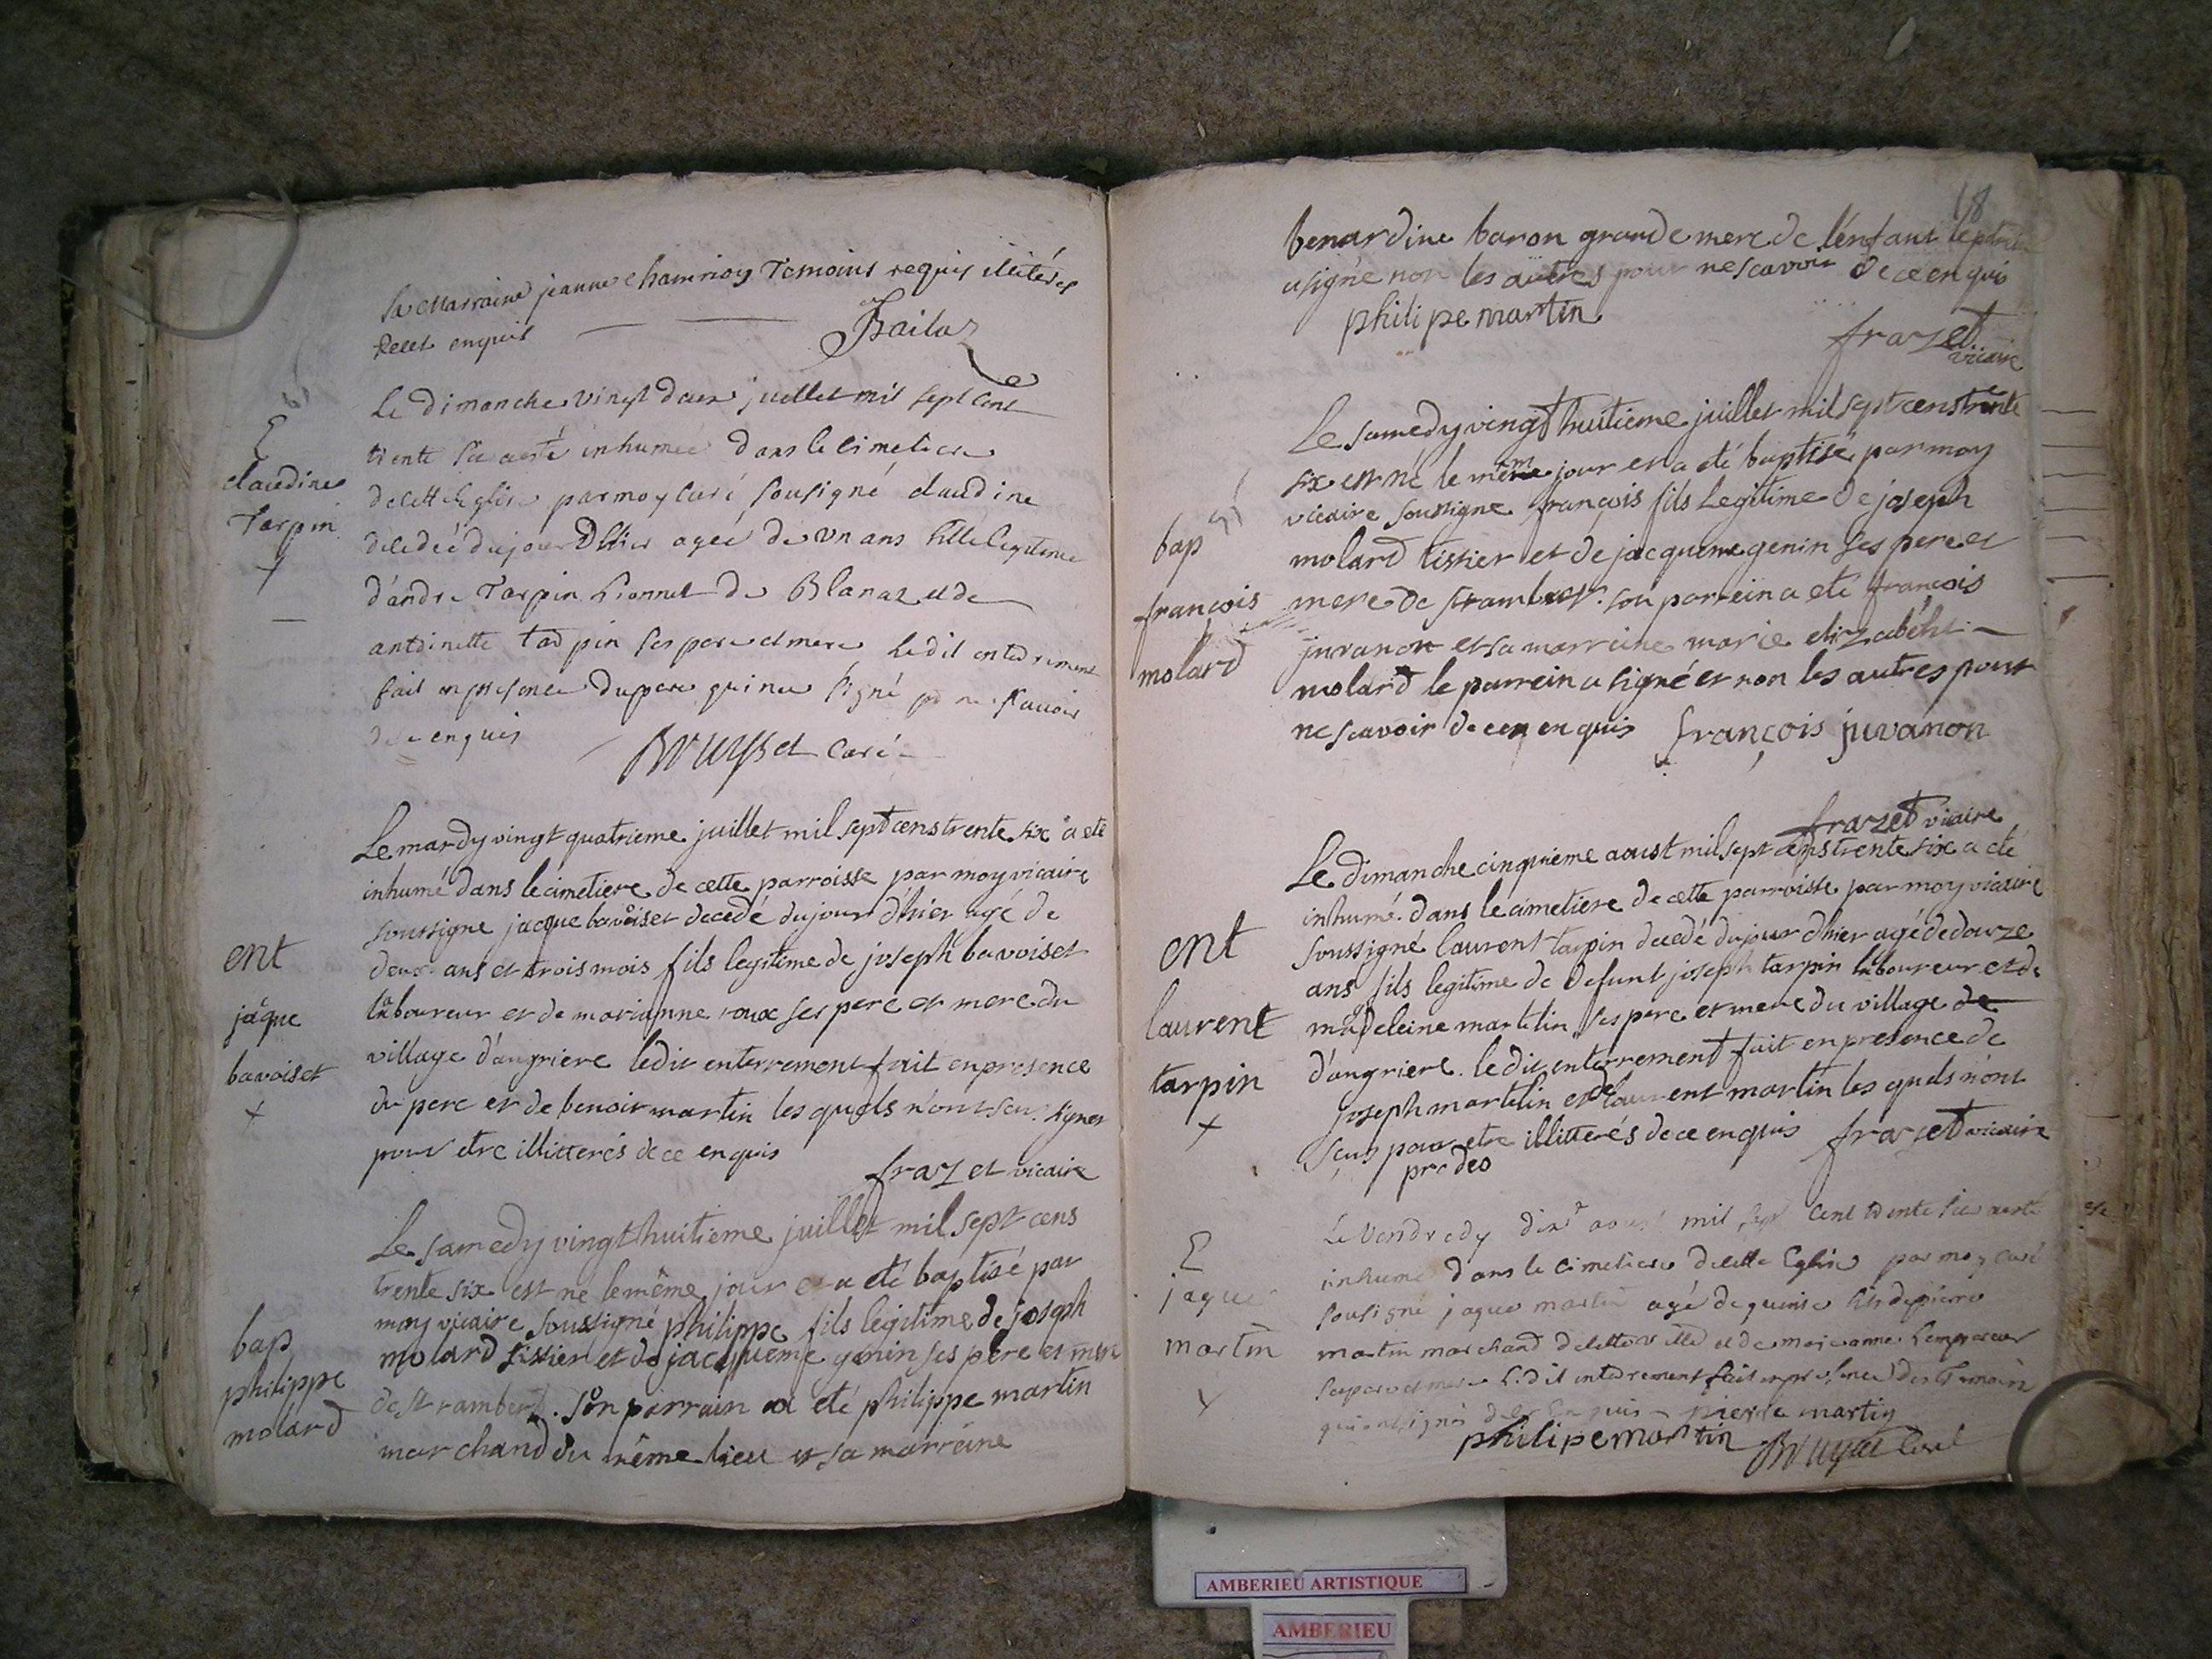 sa Marraine jeanne chamrioy Temoins requis illitérés
decet enquis
Bailaz
E
claudine
Tarpin
Le dimanche vingt deux juillet mil sept cent
trente six aesté inhumée dans le cimetiere
decett Eglise par moy curé sousigné claudine
decedeé dujour Dhier ageé de un ans fille legitime
d'andre Tarpin Lionnet de Blanaz et de
antoinette tarpin ses pere et mere Ledit enterrement
fait en presence du pere qui na signé pr ne scavoir
de ce enquis
Bruysset Curé
ent
jâque
bavoiset
+
Le mardy vingt quatrieme juillet mil sept cens trente six a eté
inhumé dans le cimetiere de cette parroisse par moy vicaire
soussigne jacque bavoiset decedé dujour d'hier agé de
deux ans et trois mois fils legitime de joseph bavoiset
laboureur et de marianne roux ses pere et mere du
village d'angriere ledit enterrement fait en presence
du pere et de benoit martin les quels n'ont sçu signer
pour etre illitterés de ce enquis
frazet vicaire
bap
philippe
molard
Le samedy vingt huitieme juillet mil sept cens
trente six est né le même jour et a eté baptisé par
moy vicaire soussigné philippe fils legitime de joseph
molard tissier et de jacqueme genin ses pere et mere
de st rambert. son parrain a eté philippe martin
marchand du même lieu et sa marraine
18
benardine baron grande mere de l'enfant
a signé non les autres pour ne scavoir de ce enquis
philipe martin
frazet
vicaire
bap
francois
molard
Le samedy vingt huitieme juillet mil sept cens trente
six est né le même jour et a eté baptisé par moy
vicaire soussigne françois fils Legitime de joseph
molard tissier et de jacqueme genin ses pere et
mere de st rambert. son parrein a eté francois
juvanon et sa marreine marie elizabeht
molard le parrein a signé et non les autres pour
ne scavoir de ce enquis françois juvanon
frazet vicaire
ent
laurent
tarpin
+
Le dimanche cinquieme aoust mil sept cens trente six a eté
inhumé dans le cimetiere de cette parroisse par moy vicaire
soussigné laurent tarpin decedé du jour d'hier agé de douze
ans fils legitime de defunt joseph tarpin laboureur et de
madeleine martelin ses pere et mere du village de
d'angriere. ledit enterrement fait en presence de
joseph martelin et de laurent martin les quels n'ont
sçus pour etre illitterés de ce enquis frazet vicaire
pro deo
E
jaque
martin
Le Vendredy dix aoust mil sept cent trente six aesté
inhumé dans le cimetiere decette Eglise par moy curé
sousigné jaque martin agé de quinse fils de pierre
martin marchand decette ville et de marianne Lempereur
ses pere et mere Ledit enterrement fait en presence des Temoins
qui ont signés de ce enquis pierre martin
philipe martin Bruysset Curé
AMBERIEU ARTISTIQUE
AMBERIEU